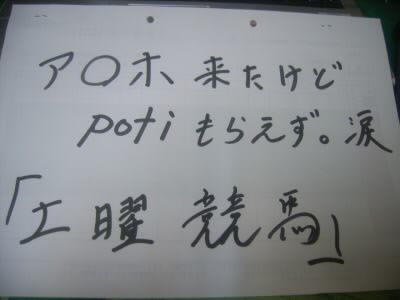 ア〇ホ 来たけど
poti もらえず。涙
「土曜 競馬」